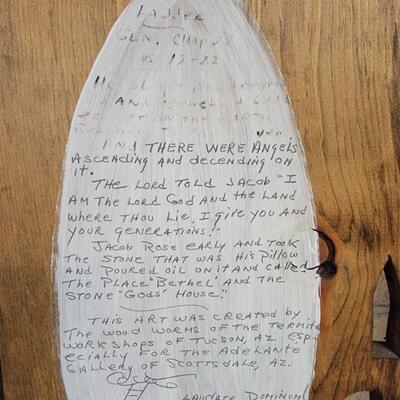 Ladder
Gen. Chap 28
vs 12-22
He
And
And There were Angels
Ascending and decending on
it.
The Lord Told Jacob "I
Am The Lord God and the Land
where Thou Lie, I give you and
your generations."
Jacob Rose early and Took
The Stone That was His pillow
and poured oil on it and called
The Place "Bethel" and the
Stone "Gods' House".
This Art was created by
The wood worms of the Termite
workshops of Tucson, Az. esp-
ecially for the Adelante
Gallery of Scottsdale, Az.
Laudate Dominum